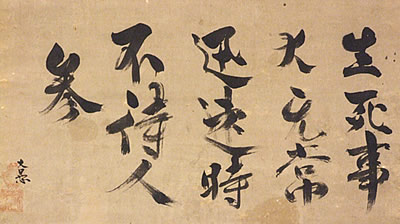 生死事
大无常
迅速時
不待人
参